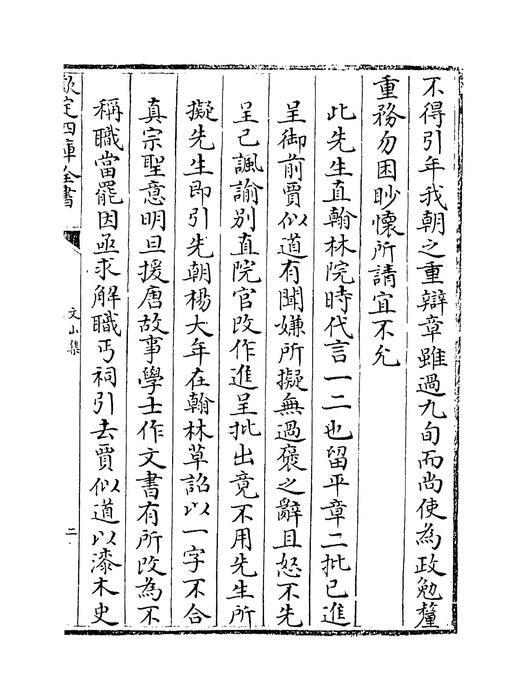 不得引年我朝之重辯章雖過九旬而尚使為政勉釐
重務勿困眇懷所請宜不允
此先生直翰林院時代言一二也留平章二批已進
呈御前賈似道有聞嫌所擬無過褒之辭且怒不先
呈己諷諭别直院官改作進呈批出竟不用先生所
擬先生即引先朝楊大年在翰林草詔以一字不合
真宗聖意明旦援唐故事學士作文書有所改為不
稱職當罷因亟求解職丐祠引去賈似道以漆木史
欽定四庫全書
文山集
二